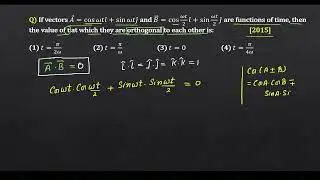 Q) If vectors A⃗ = cos ωt î + sin ωt ĵ and B⃗ = cos ωt/2 î + sin ωt/2 ĵ are functions of time, then
the value of t at which they are orthogonal to each other is: [2015]
(1) t = π/2ω (2) t = π/ω (3) t = 0 (4) t = π/4ω
A⃗ · B⃗ = 0 î · î = ĵ · ĵ = k̂ · k̂ = 1
Cosωt · Cos ωt/2 + Sinωt · Sin ωt/2 = 0
Cos(A ± B)
= CosA · CosB ∓
SinA · Si